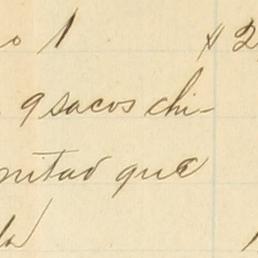 o 1 $ 2
9 sacos chi-
mitad que